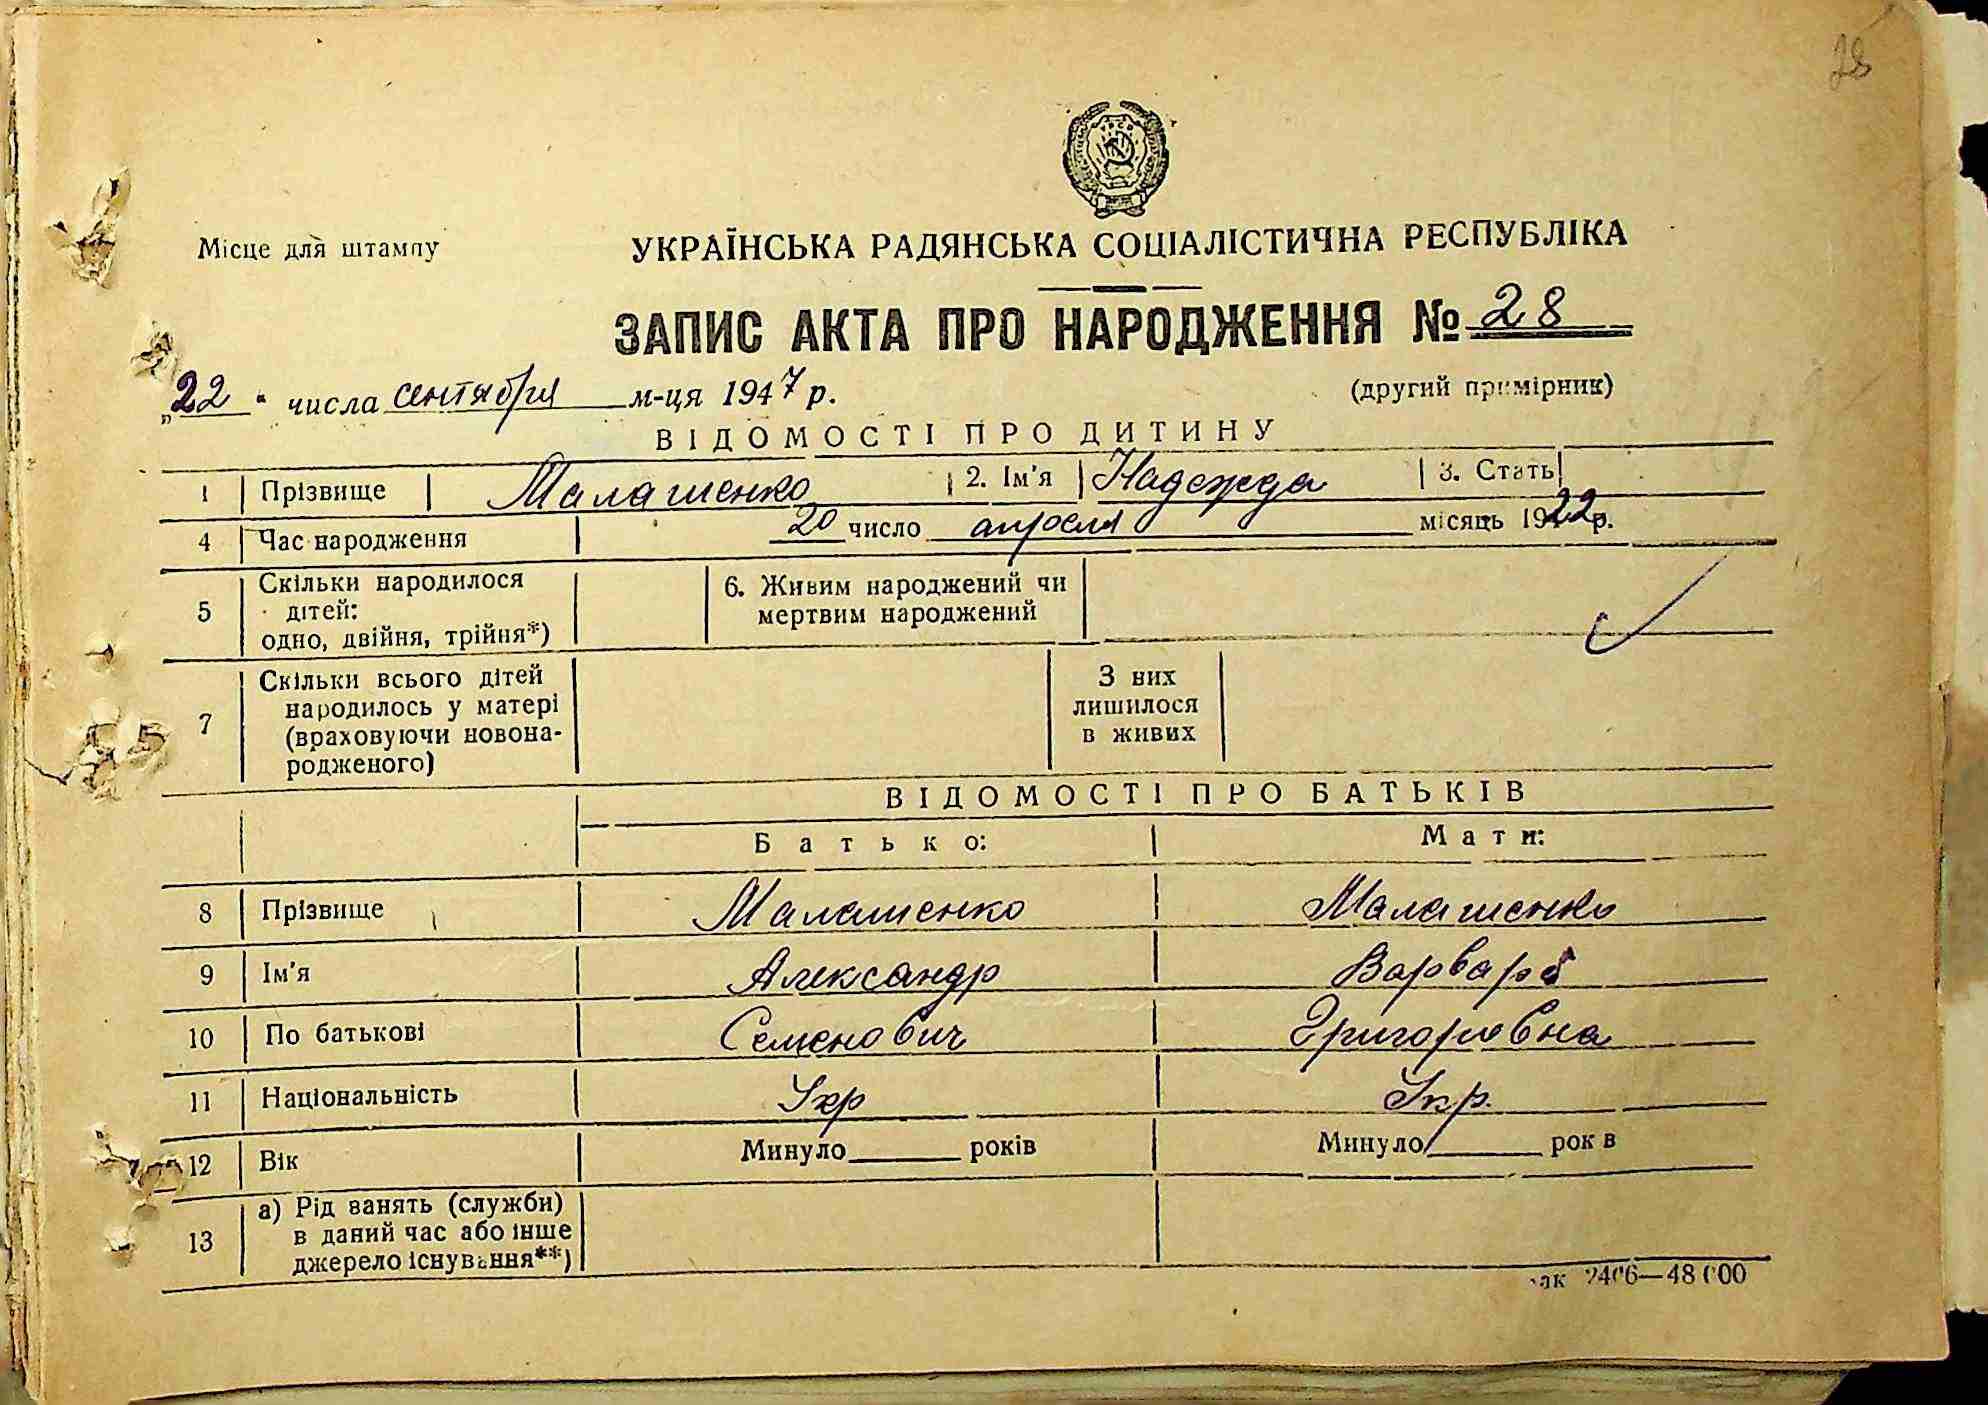 28
Місце для штампу
УКРАЇНСЬКА РАДЯНСЬКА СОЦІАЛІСТИЧНА РЕСПУБЛІКА
ЗАПИС АКТА ПРО НАРОДЖЕННЯ № 28
„22“ числа сентября м-ця 1947 р.
(другий примірник)
ВІДОМОСТІ ПРО ДИТИНУ
1 Прізвище Малашенко 2. Ім'я Надежда 3. Стать
4 Час народження 20 число апреля місяць 1922 р.
5 Скільки народилося дітей: одно, двійня, трійня*) 6. Живим народжений чи мертвим народжений
7 Скільки всього дітей народилось у матері (враховуючи новонародженого) З них лишилося в живих
ВІДОМОСТІ ПРО БАТЬКІВ
Батько: Мати:
8 Прізвище Малашенко Малашенко
9 Ім'я Александр Варвара
10 По батькові Семенович Григорьевна
11 Національність Укр Укр.
12 Вік Минуло років Минуло рок в
13 а) Рід занять (служби) в даний час або інше джерело існування**)
зак 2406—48 000